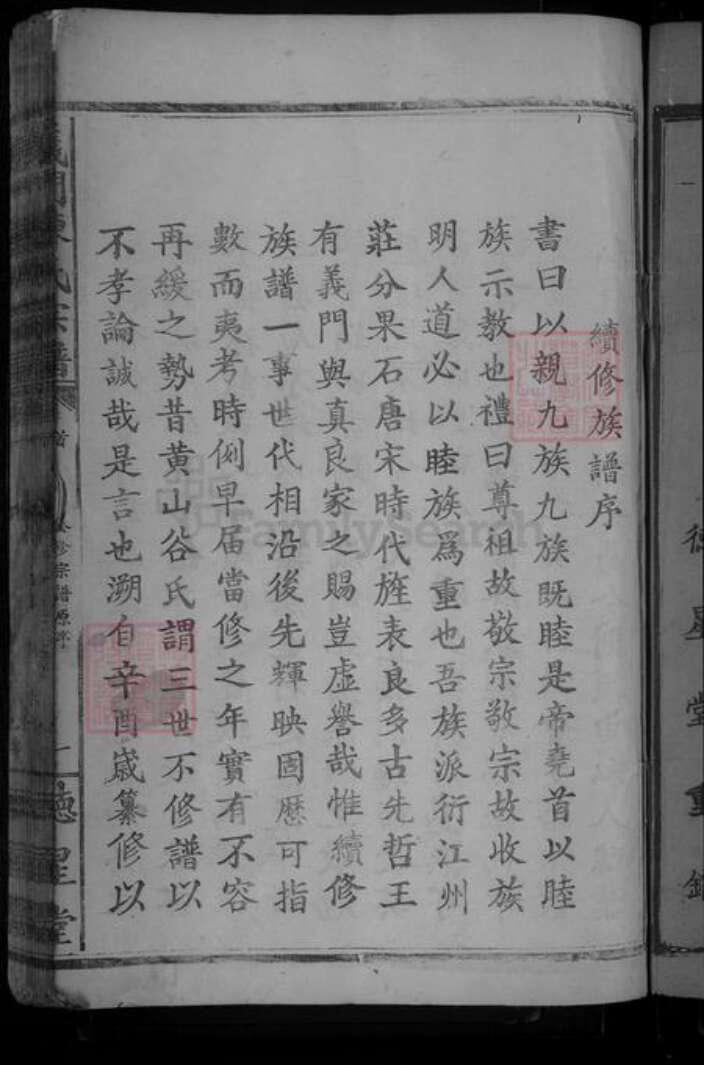 續修族譜序
書曰以親九族九族既睦是帝堯首以睦
族示教也禮曰尊祖故敬宗敬宗故收族
明人道必以睦族爲重也吾族派衍江州
莊分果石唐宋時代旌表良多古先哲王
有義門與真良家之賜豈虛譽哉惟續修
族譜一事世代相沿後先輝映固歷可指
數而夷考時例早届當修之年實有不容
再緩之勢昔黃山谷氏謂三世不修譜以
不孝論誠哉是言也溯自辛酉歲纂修以
義門陳氏宗譜
首
宗譜原序
德星堂
德星堂重鐫
FamilySearch